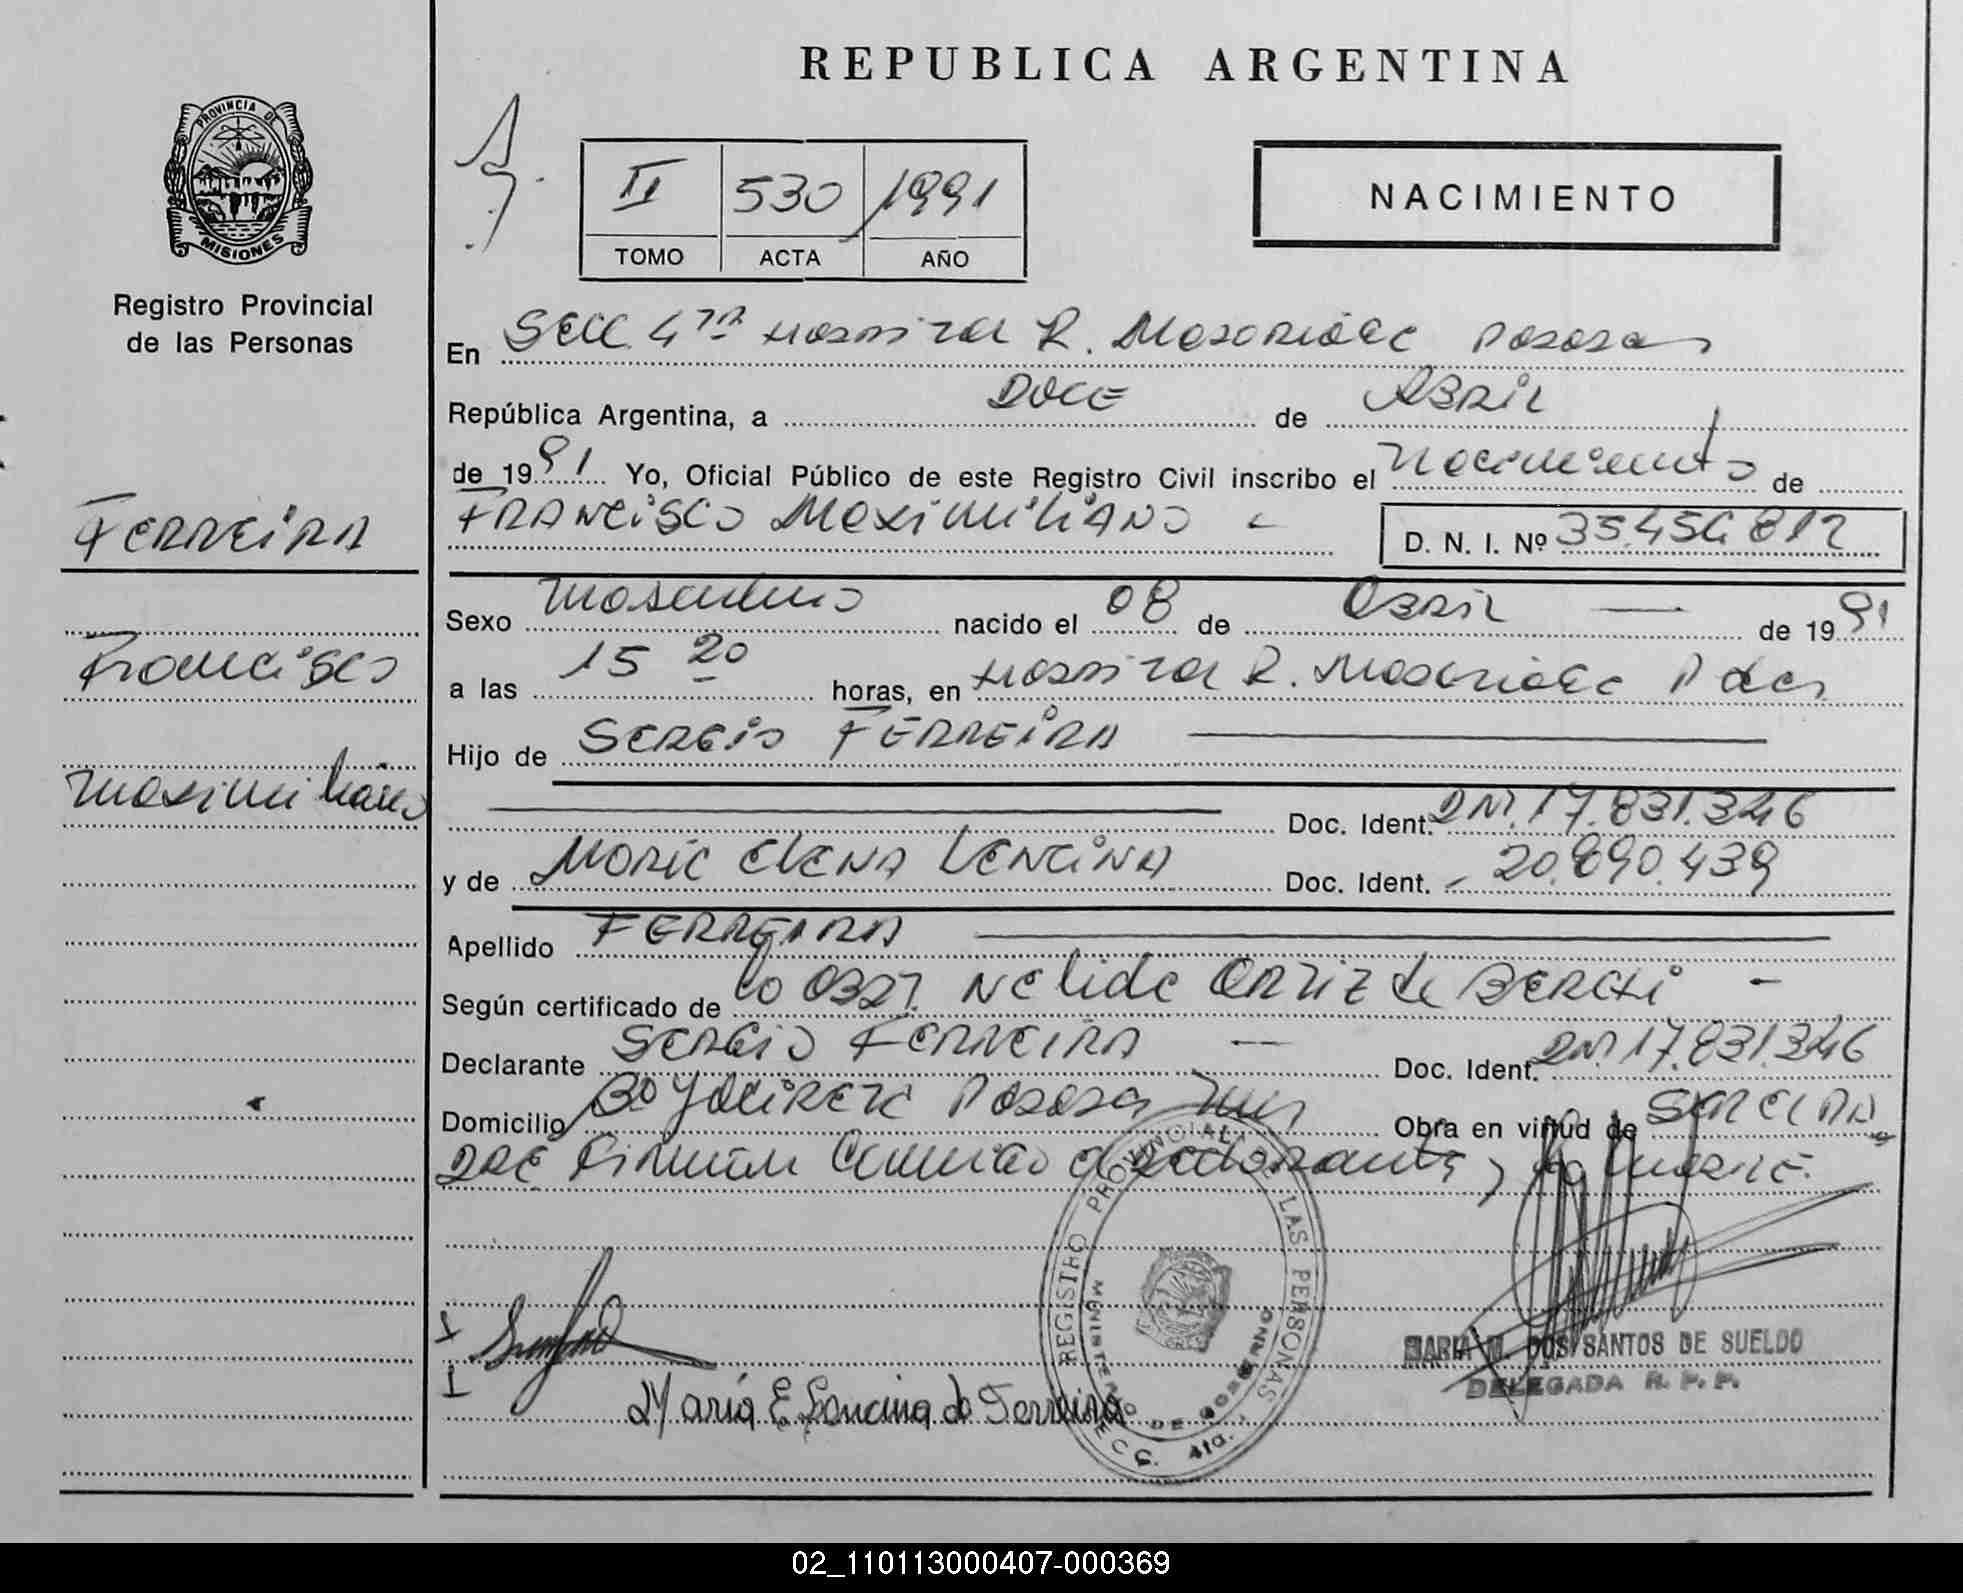 REPUBLICA ARGENTINA
PROVINCIA DE
MISIONES
Registro Provincial
de las Personas
II 530 1991
TOMO ACTA AÑO
NACIMIENTO
En Secc. 4ta Hospital R. Madariaga Posadas
República Argentina, a DOCE de Abril
de 1991 Yo, Oficial Público de este Registro Civil inscribo el Nacimiento de
FERREIRA
FRANCISCO MAXIMILIANO
D. N. I. Nº 35.456.812
Sexo Masculino nacido el 08 de Abril de 1991
Francisco
a las 15 20 horas, en Hospital R. Madariaga Pdas
Hijo de SERGIO FERREIRA
Maximiliano
Doc. Ident. DNI. 17.831.346
y de MARIA ELENA LENCINA Doc. Ident. 20.890.439
Apellido FERREIRA
Según certificado de la Obst. Nelida ORTIZ de BERCHI
Declarante SERGIO FERREIRA Doc. Ident. DNI 17.831.346
Domicilio Bo Yacireta Posadas Mnes Obra en virtud de SER EL PA
DRE Firman Conmigo el Declarante y la madre.
REGISTRO PROVINCIAL DE LAS PERSONAS
MINISTERIO DE GOBIERNO
SECC. 4ta.
María E Lencina de Ferreira
MARIA M. DOS SANTOS DE SUELDO
DELEGADA R. P. P.
02_110113000407-000369